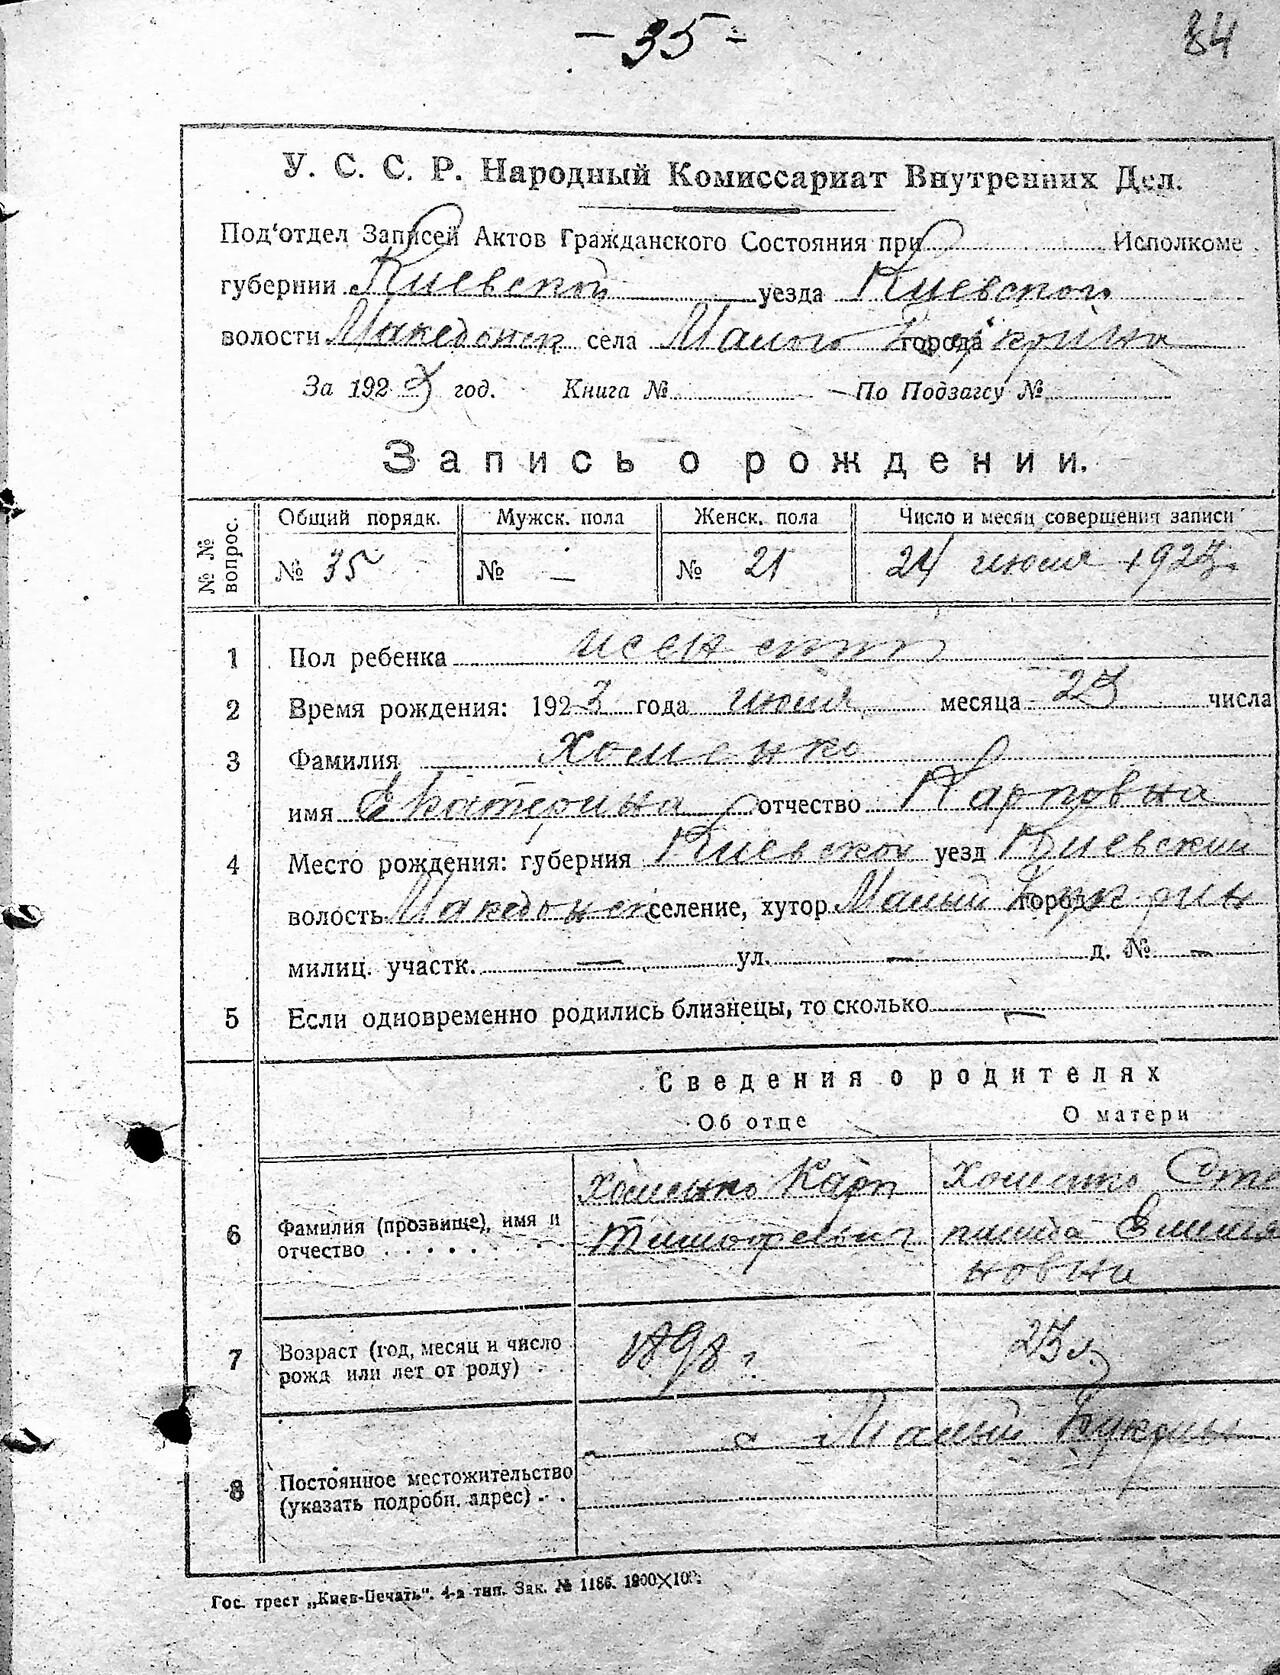 - 35 -
84
У. С. С. Р. Народный Комиссариат Внутренних Дел.
Под'отдел Записей Актов Гражданского Состояния при Исполкоме
губернии Киевской уезда Киевского
волости Македонск села Малого Букрина города
За 1923 год. Книга № — По Подзагсу №
Запись о рождении.
№ № вопрос. Общий порядк. Мужск. пола Женск. пола Число и месяц совершения записи
№ 35 № — № 21 24 июля 1923.
1 Пол ребенка женский
2 Время рождения: 1923 года июля месяца 23 числа
3 Фамилия Хоменко
имя Екатерина отчество Карповна
4 Место рождения: губерния Киевской уезд Киевский
волость Македонск селение, хутор Малый Букрин город
милиц. участк. — ул. — д. № —
5 Если одновременно родились близнецы, то сколько —
Сведения о родителях
Об отце О матери
6 Фамилия (прозвище), имя и отчество Хоменко Карп Тимофеевич Хоменко Сте
панида Емелья
новна
7 Возраст (год, месяц и число рожд или лет от роду) 1898 г. 23 л.
8 Постоянное местожительство (указать подробн. адрес) с Малый Букрин
Гос. трест „Киев-Печать". 4-я тип. Зак. № 1186. 1900×100.